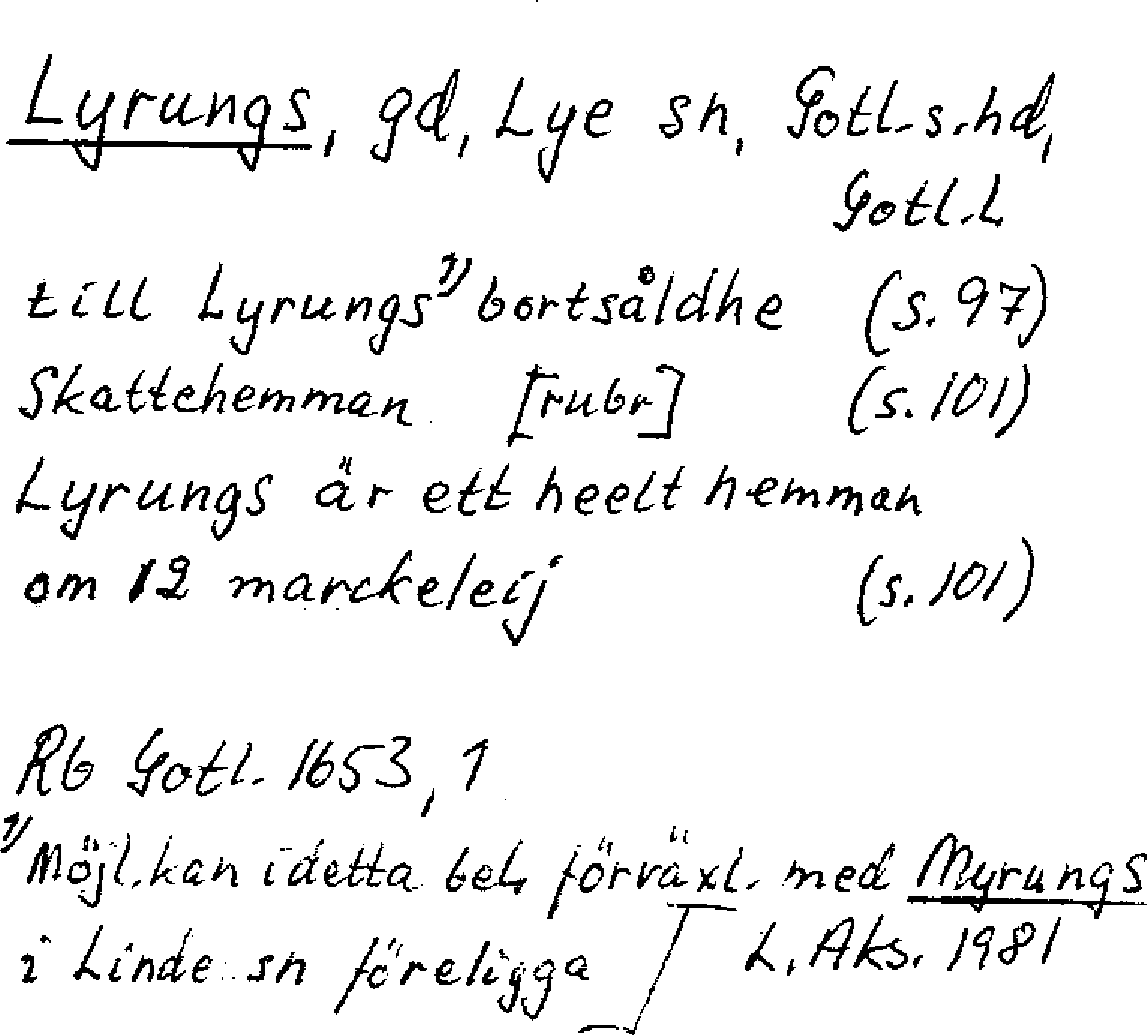 Lyrungs, gd, Lye sn, Gotl. s. hd,
Gotl. L
till Lyrungs 1) bortsåldhe (s. 97)
Skattehemman [rubr] (s. 101)
Lyrungs är ett heelt hemman
om 12 marckeleij (s. 101)
Rb Gotl. 1653, 1
1) Möjl. kan i detta bel. förväxl. med Myrungs
i Linde sn föreligga
L. Aks. 1981